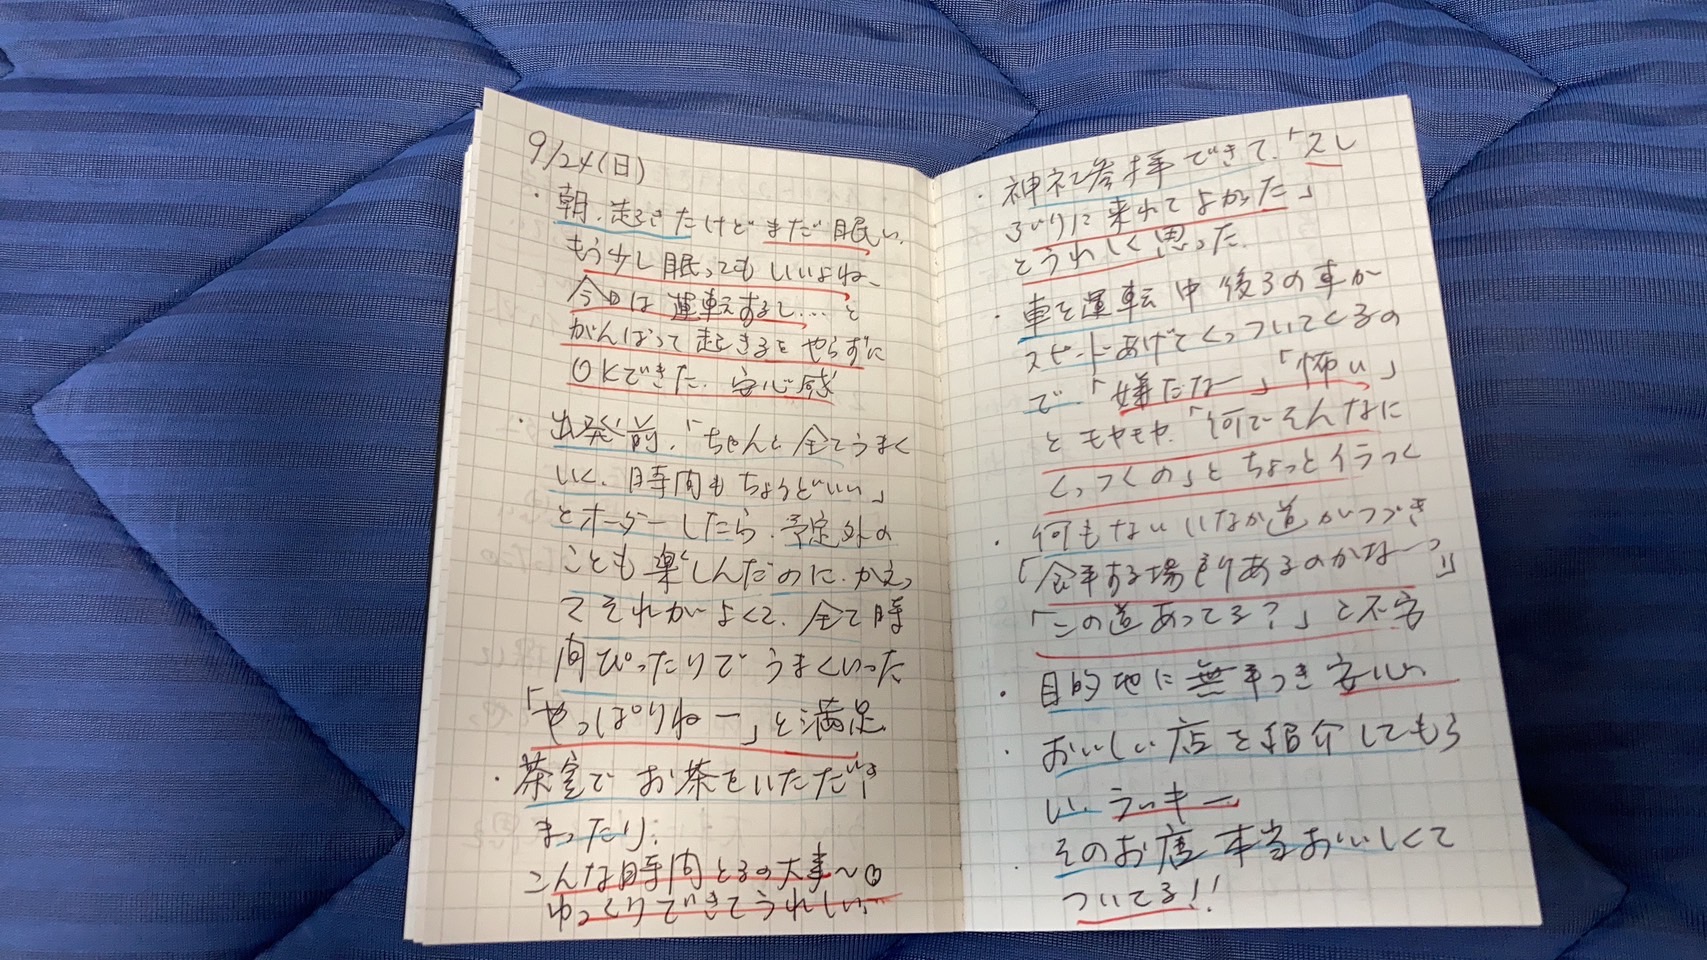 9/24(日)
・朝、起きたけどまだ眠い、
もう少し眠ってもいいよね、
今日は運転するし…と
がんばって起きるをやらずに
OKできた。安心感
・出発前、「ちゃんと全てうまく
いく、時間もちょうどいい」
とオーダーしたら、予定外の
ことも楽しんだのに、かえっ
てそれがよくて、全て時
間ぴったりでうまくいった
「やっぱりねー」と満足
・茶室でお茶をいただき
まったり。
こんな時間とるの大事〜
ゆっくりできてうれしい。
・神社参拝できて、「久し
ぶりに来れてよかった」
とうれしく思った。
・車を運転中後ろの車が
スピードあげてくっついてくるの
で、「嫌だなー」「怖い」
とモヤモヤ、「何でそんなに
くっつくの」とちょっとイラっく
・何もないいなか道がつづき
「食事する場所あるのかなー?」
「この道あってる?」と不安
・目的地に無事つき安心
・おいしい店を紹介してもら
い、ラッキー
・そのお店本当おいしくて
ついてる!!